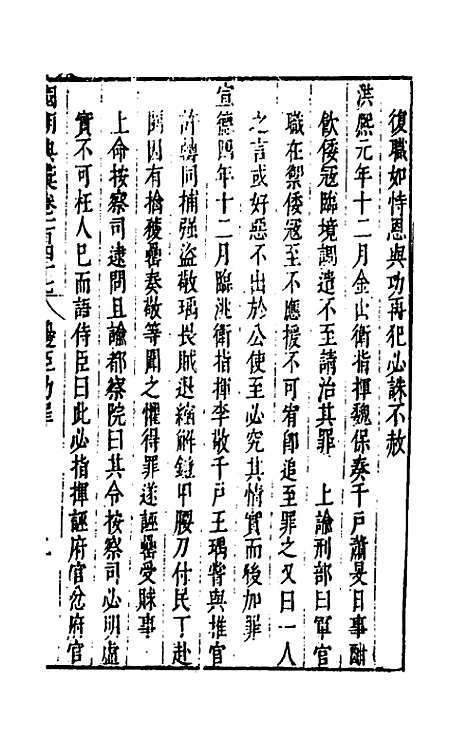 復職如恃恩與功再犯必誅不赦
洪熙元年十二月金山衛指揮魏保奏千戶蕭旻日事酣
飲倭寇臨境調遣不至請治其罪　上諭刑部曰軍官
職在禦倭寇至不應援不可宥卽追至罪之又曰一人
之言或好惡不出於公使至必究其情實而後加罪
宣德四年十二月臨洮衛指揮李敬千戶王瑀嘗與推官
許譽同捕强盜敬瑀長賊退縮解鎧甲腰刀付民丁赴
鬬因有擒獲譽奏敬等聞之懼得罪遂誣譽受賕事
上命按察司逮問且諭都察院曰其令按察司必明虛
實不可枉人已而語侍臣曰此必指揮誣府官忿府官
國朝典彙卷一百四十七　邊臣功罪　九